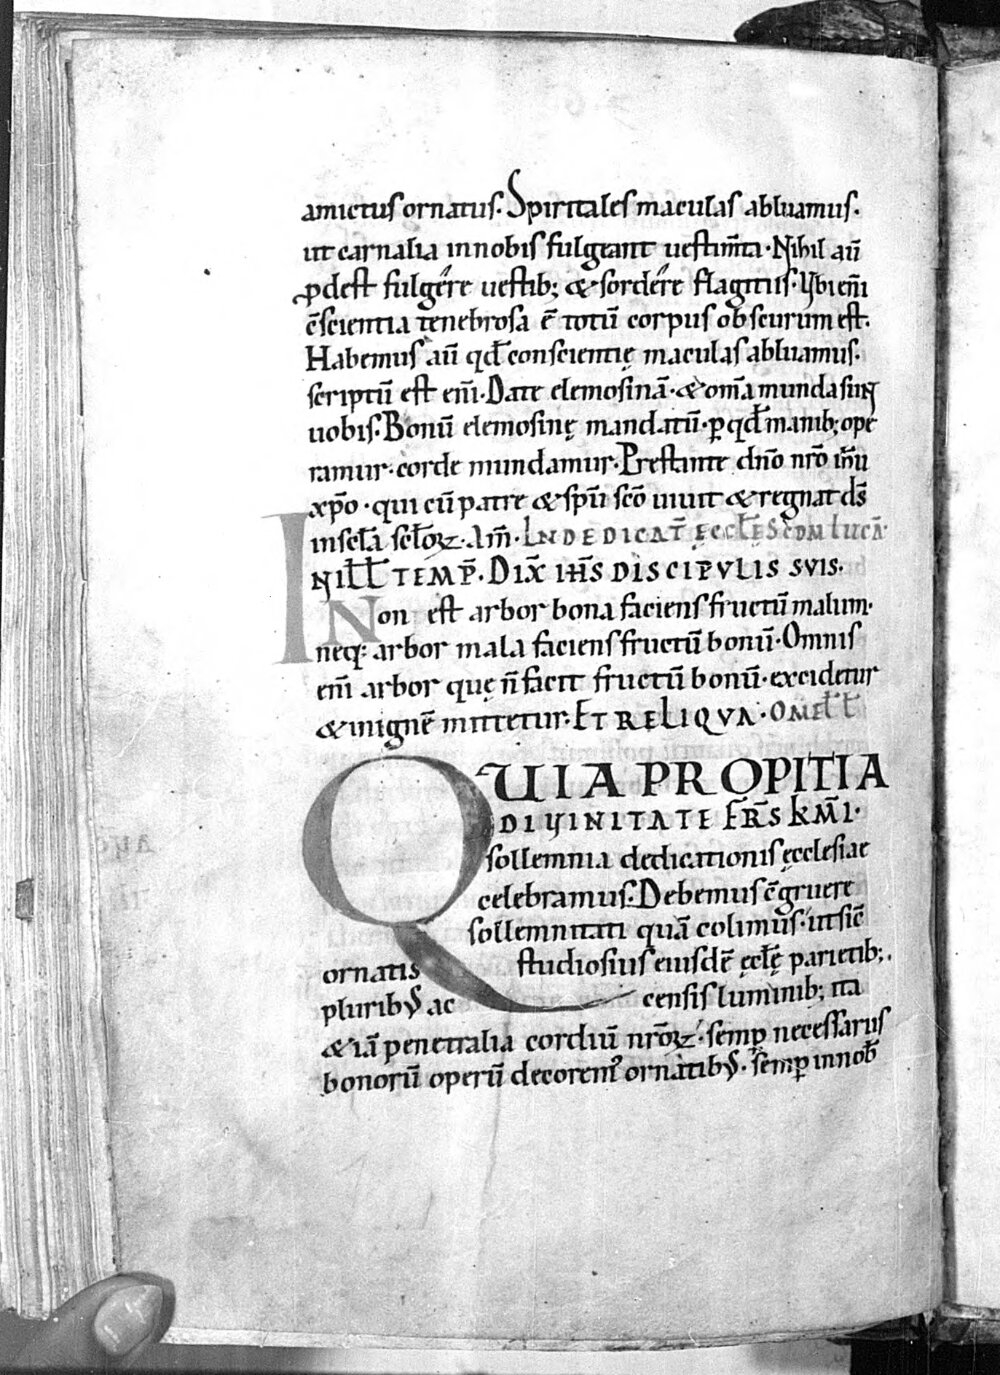 amictus ornatus. Spiritales maculas abluamus.
ut carnalia innobis fulgeant uestim̅ta. Nihil au̅
ꝓdest fulgere uestib; & sordere flagitiis. Ubi eni̅
c̅scientia tenebrosa e̅ totu̅ corpus obscurum est.
Habemus au̅ qd̅ conscientię maculas abluamus.
scriptu̅ est eni̅. Date elemosina̅. & om̅a munda sunt
uobis. Bonu̅ elemosinę mandatu̅. ꝑ qd̅ manib; ope
ramur. corde mundamur. Prestante dn̅o nr̅o ih̅u
xp̅o. qui cu̅ patre & sp̅u sc̅o uiuit & regnat ds̅
in scl̅a scl̅oꝝ. Am̅. IN DEDICAT̅ ĘCCL̅Ę SCDM LUCA̅
N ILL̅ TEMP̅. DIX̅ IH̅S DISCIPVLIS SVIS.
Non est arbor bona faciens fructu̅ malum.
neq: arbor mala faciens fructu̅ bonu̅. Omnis
eni̅ arbor quę n̅ facit fructu̅ bonu̅. excidetur
& in igne̅ mittetur. ET RELIQVA. OMEL̅
QUIA PROPITIA
DIVINITATE FR̅S KM̅I.
sollemnia dedicationis ęcclesiae
celebramus. Debemus c̅gruere
sollemnitati qua̅ colimus. ut sic̅
ornatis studiosius eiusde̅ ęcl̅ę parietib;.
pluribꝰ ac censis luminib; ita
& ia̅ penetralia cordiu̅ nr̅oꝝ. semꝑ necessariis
bonoru̅ operu̅ decorent̉ ornatibꝰ. semꝑ in nob̅